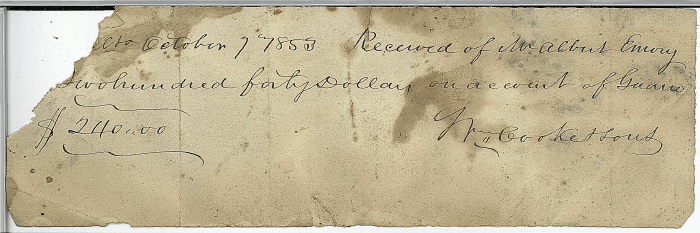 alto October 7th 1853 Received of Mr Albert Emory
Two hundred forty Dollars on account of Guano
$ 240.00
Wm Cooke & sons